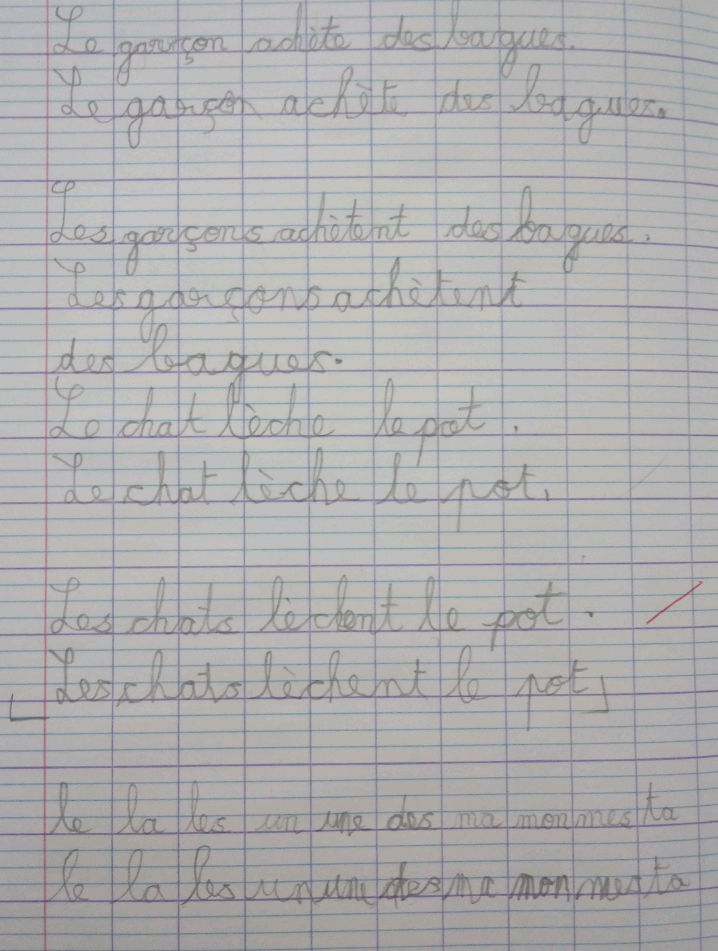 Le garçon achète des bagues.
Le garçon achète des bagues.
Les garçons achètent des bagues.
Les garçons achètent
des bagues.
Le chat lèche le pot.
Le chat lèche le pot.
Les chats lèchent le pot.
Les chats lèchent le pot
le la les un une des ma mon mes ta
le la les un une des ma mon mes ta